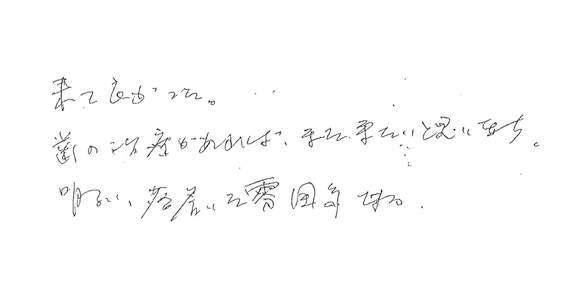 来て良かった。
歯の治療があれば、また来たいと思います。
明るい、落着いた雰囲気である.